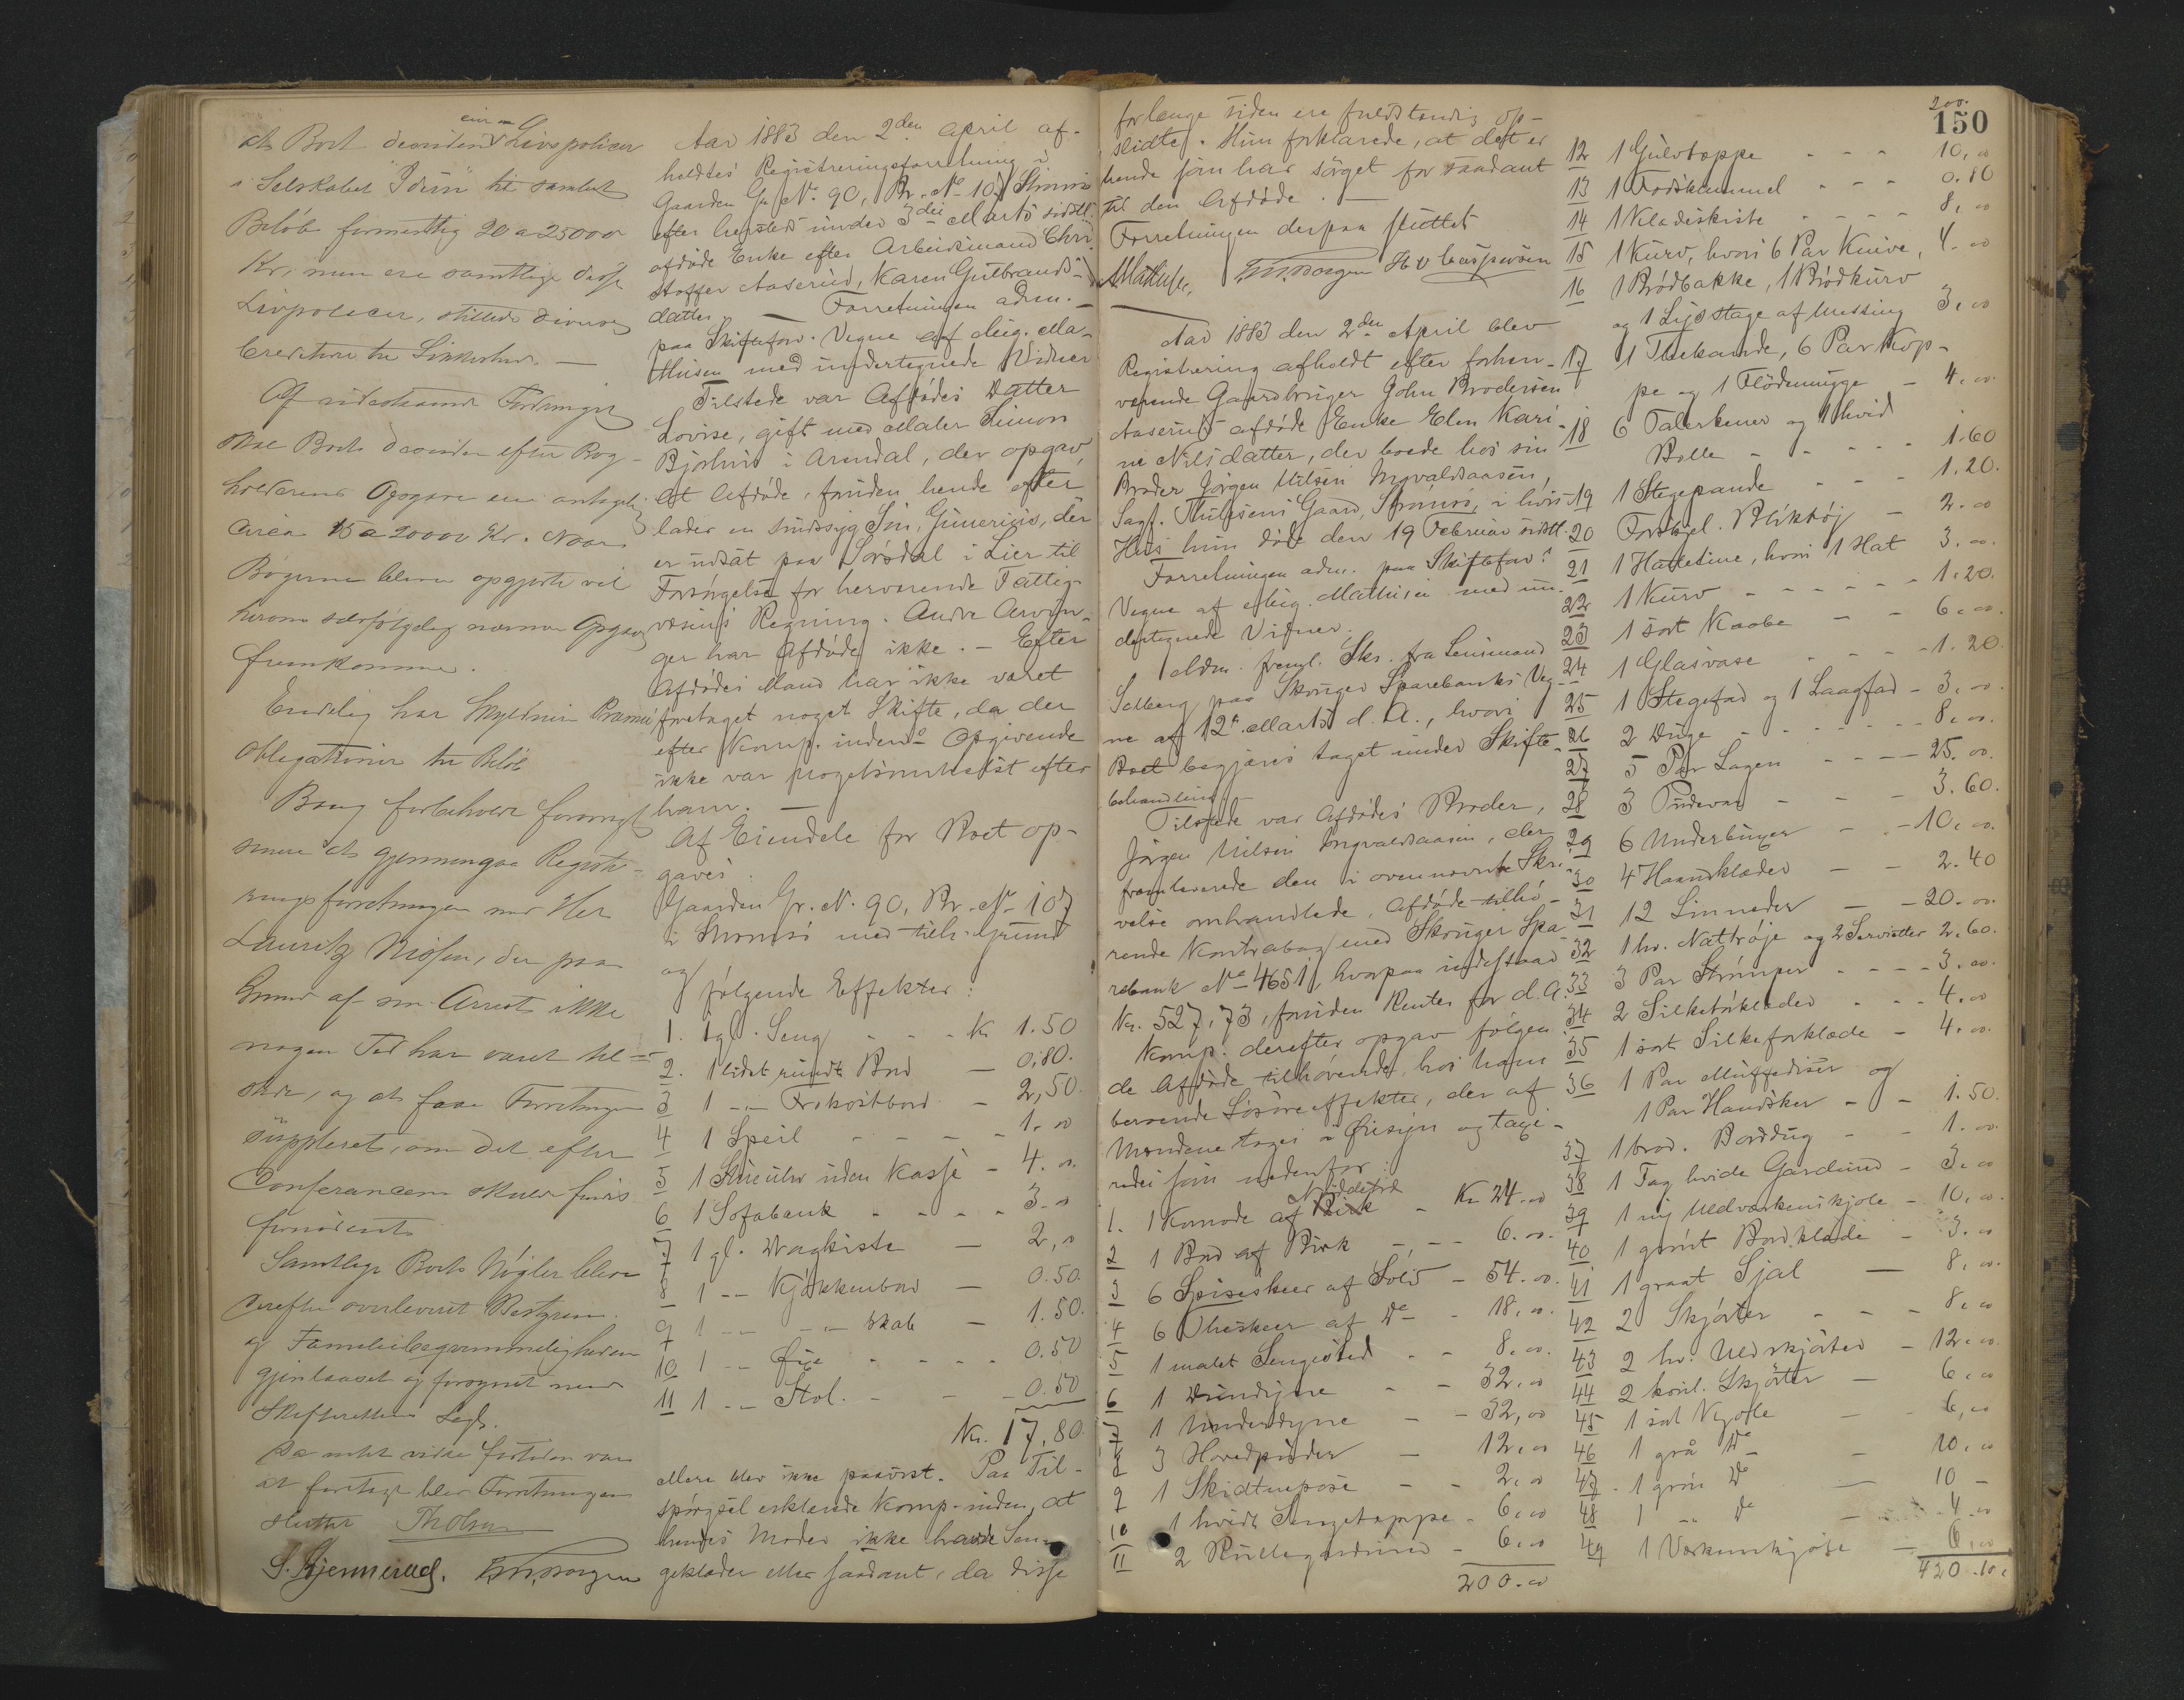 at Boet desuden Livspolicer
i Selskabet "Idun" til samlet
Beløb formentlig 20 a 25000
Kr, men ere samtlige disse
Livpolicer, stillede diverse
Creditorer til Sikkerhed. —
Af udestaaende Fordringer
skal Boet desuden efter Bog-
holderens Opgave eie antagelig
circa 15 a 20000 Kr. Naar
Bøgerne bliver opgjorte vil
herom selvfølgelig nærmere Opgave
fremkomme.
Endelig har Skyldneren Præmie
obligationer til Beløb
Boug forbeholdt forøvrigt
senere at gjennemgaa Registre-
ringsforretningen med Her
Lauritz Nielsen, der paa
Grund af sin Arrest ikke
nogen Tid har været til-
stede, og at faae Forretningen
suppleret, om det efter
Conferancen skulde findes
fornødent.
Samtlige Boets Nøgler blev
derefter overleveret Bestyreren
og Familiebegvemmeligheden
gjenlaaset og forsynet med
Skifterettens Segl.
Da intet videre fortiden var
at foretage blev Forretningen
sluttet Th Olsen
S. Gjennerud.
Aar 1883 den 2den April af-
holdtes Registreringsforretning i
Gaarden Gr No. 90, Br. No 107 Strømsø
efter hersteds under 3die Marts sidstl.
afdøde Enke efter Arbeidsmand Chri-
stoffer Aaserud, Karen Gulbrands-
datter. — Forretningen adm.
paa Skiftefor. Vegne af Aug. Ma-
thisen med undertegnede Vidner
Tilstede var Afdødes Datter
Lovise, gift med Maler Simon
Bjørhus i Arendal, der opgav,
at Afdøde, foruden hende efter-
lader en sindssyg Søn, Gunerius, der
er udsat paa Sørsdal i Lier til
Forsørgelse for herværende Fattig-
væsens Regning. Andre Arvin-
ger har Afdøde ikke. — Efter
Afdødes Mand har ikke været
foretaget noget Skifte, da der
efter Komp.indens Opgivende
ikke var nogetsomhelst efter
ham. —
Af Eiendele for Boet op-
gaves:
Gaarden Gr. N. 90, Br. No 107
i Strømsø med tilh. Grund
og følgende Effekter:
1. 1 gl. Seng - - - Kr 1.50
2. 1 lidet rundt Bord — 0,80.
3 1 -"- Frokostbord - 2,50.
4 1 Speil - - - - 1. 00
5 1 Stueuhr uden Kasse - 4. 00
6 1 Sofabænk - - - - 3. 00
7 1 gl. Dragkiste — 2, 00
8 1 -"- Kjøkkenbord — 0.50.
9 1 -"- -"- skab — 1.50.
10 1 -"- Øxe - - - - 0.50
11 1 -"- Stol. - - - 0.50
Kr. 17,80.
Mere blev ikke paavist. Paa Til-
spørgsel erklærede Komp.inden, at
hendes Moder ikke havde Sen-
geklæder eller saadant, da disse
forlænge siden ere fuldstændig op-
slidte. Hun forklarede, at det er
hende som har sørget for saadant
til den Afdøde. —
Forretningen derpaa sluttet
AMathisen.
Aar 1883 den 2den April blev
Registrering afholdt efter forhen-
værende Gaardbruger John Brodersen
Aaseruds afdøde Enke Elen Kari-
ne Nilsdatter, der boede hos sin
Broder Jørgen Nilsen Ingvaldsaasen,
Sagf. Thulesens Gaard, Strømsø, i hvis
Hus hun døde den 19 Februar sidstl.
Forretningen adm. paa Skiftefor.s
Vegne af Aug. Mathisen med un-
dertegnede Vidner.
Adm. freml. Skr. fra Lensmand
Solberg paa Skouger Sparebanks Veg-
ne af 12te Marts d. A., hvori
Boet begjæres taget under Skifte-
behandling.
Tilstede var Afdødes Broder,
Jørgen Nilsen Ingvaldsaasen, der
fremleverede den i ovennævnte Skri-
velse omhandlede, Afdøde tilhø-
rende Kontrabog med Skouger Spa-
rebank No 4651, hvorpaa indestaar
Kr. 527,73, foruden Renter for d. A.
Komp. derefter opgav følgen-
de Afdøde tilhørende, hos ham
beroende Løsøreeffekter, der af
Mændene toges i Øiesyn og taxe-
redes som nedenfor:
1. 1 Komode af Birk Nøddetræ - Kr 24.00
2 1 Bord af Birk - - - 6.00.
3 6 Spiseskeer af Sølv - 54.00.
4 6 Theskeer af Do - 18,00.
5 1 malet Sengested - - 8.00.
6 1 Dundyne - - 32.00
7 1 Underdyne - - 32,00
8 3 Hovedpuder — 12.00
9 1 Skidtenpose - - 2,00
10 1 hvidt Sengetæppe - 6,00
11 2 Rullegardiner - 6.00
200.00
200.
150
12 1 Gulvtæppe - - - 10,00
13 1 Fodskammel - - - 0.80
14 1 Klædeskiste - - - - 8,00
15 1 Kurv, hvori 6 Par Knive, 4.00
16 1 Brødbakke, 1 Brødkurv
og 1 Lysestage af Messing 3,00
17 1 Thekande, 6 Par Kop-
pe og 1 Flødemugge - 4.00.
18 6 Talerkener og 1 hvid
Bolle - - - - 1.60
19 1 Stegepande - - - 1.20.
20 Forskjel. Bliktøj - 2.00
21 1 Hatteeske, hvori 1 Hat 3.00.
22 1 Kurv - - - - - 1.20.
23 1 sort Kaabe - - 6.00.
24 1 Glasvase - - - - 1.20.
25 1 Stegefad og 1 Laagfad - 3,00.
26 2 Duge - - - - - - 8,00.
27 5 Par Lagen - - - - 25.00.
28 3 Pudevar - - - 3.60.
29 6 Underbuxer - - 10,00.
30 4 Haandklæder - - 2.40
31 12 Linneder - - 20.00.
32 1 hv. Nattrøje og 2 Servietter 2.60.
33 3 Par Strømper - - - - 3.00.
34 2 Silketørklæder - - - 4.00
35 1 sort Silkeforklæde - 4.00.
36 1 Par Muffediser og
1 Par Handsker - - 1.50.
37 1 brod. Borddug - - 1.00.
38 1 Fag hvide Gardiner - 3.00
39 1 ny Uldværkenskjole - 10,00.
40 1 grønt Bordklæde - 3.00
41 1 graat Sjal — 8,00.
42 2 Skjørter - - - 8,00
43 2 hv. Uldskjørter - 12.00.
44 2 koul. Skjørter — 6,00
45 1 sort Kjole — 6,00
46 1 grå Do - 10,00
47 1 grøn Do — 10 -
48 1 -"- Do — 4.00
49 1 Værkenskjole — 6,00
420.10.